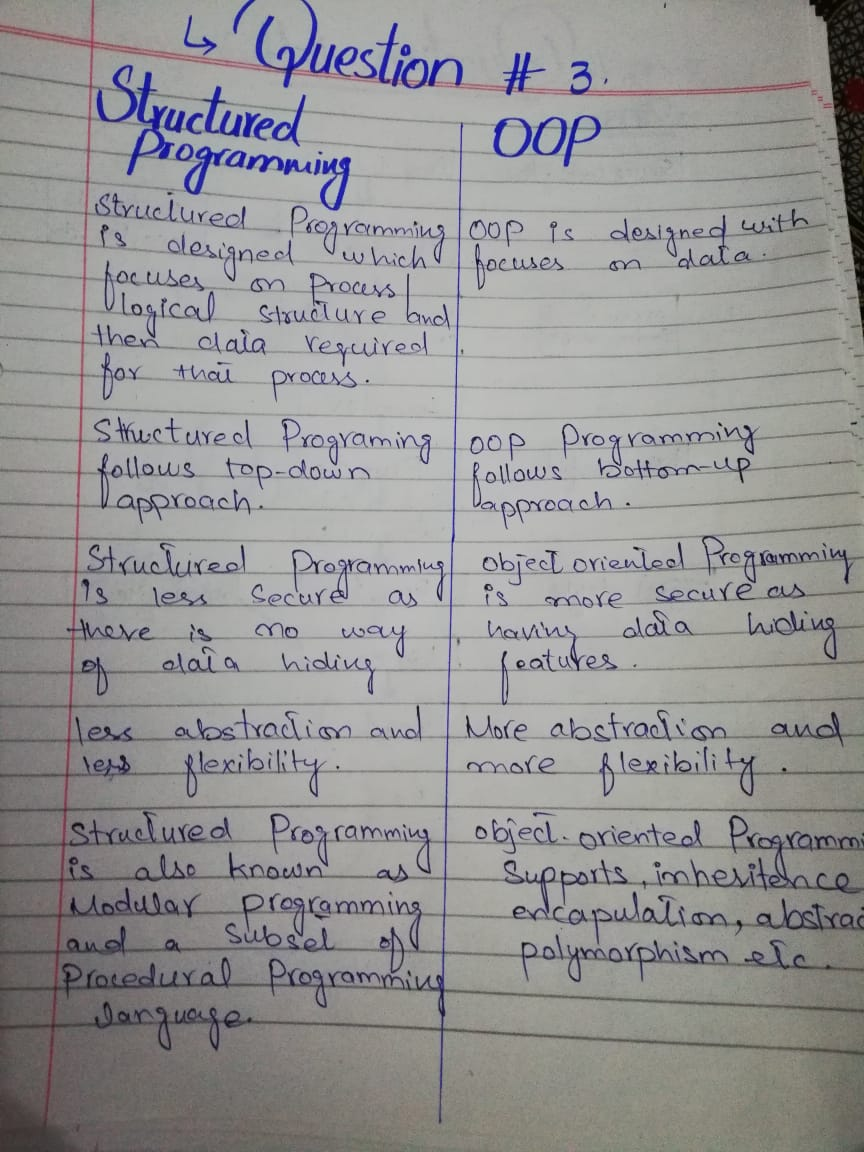 ↳ Question # 3.
Structured
Programming
OOP
Structured Programming
is designed which
focuses on Process/
logical structure and
then data required
for that process.
OOP is designed with
focuses on data.
Structured Programing
follows top-down
approach.
OOP Programming
follows bottom-up
approach.
Structured Programming
is less secure as
there is no way
of data hiding
object oriented Programming
is more secure as
having data hiding
features.
less abstraction and
less flexibility.
More abstraction and
more flexibility.
Structured Programming
is also known as
Modular programming
and a subset of
Procedural Programming
language.
object-oriented Programmi
Supports, inheritence
encapulation, abstrac
polymorphism etc.